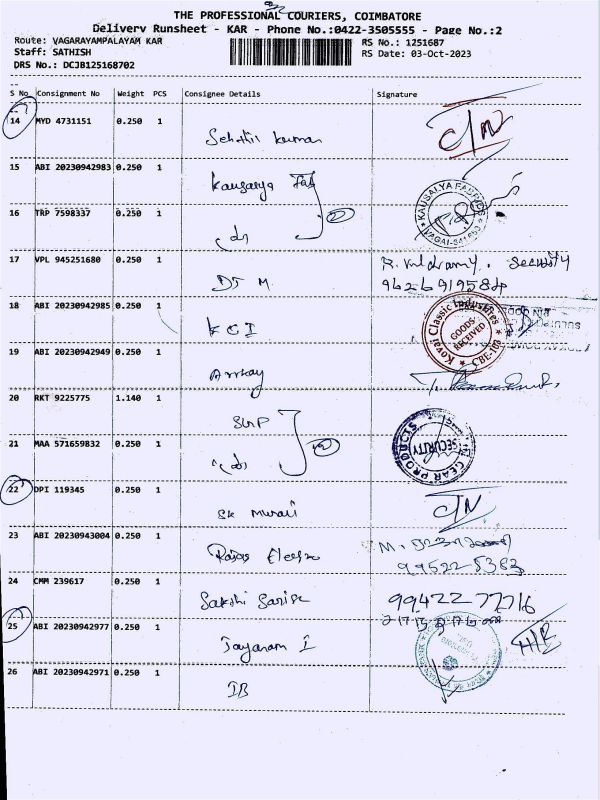 THE PROFESSIONAL COURIERS, COIMBATORE
Delivery Runsheet - KAR - Phone No.:0422-3505555 - Page No.:2
Route: VAGARAYAMPALAYAM KAR
RS No.: 1251687
Staff: SATHISH
RS Date: 03-Oct-2023
DRS No.: DCJB125168702
S No Consignment No Weight PCS Consignee Details Signature
14 MYD 4731151 0.250 1
Kumar
15 ABI 20230942983 0.250 1
KAUSALYA FABRICS
16 TRP 7598337 0.250 1
17 VPL 945251680 0.250 1
Security
DJ M
9626919584
18 ABI 20230942985 0.250 1
KCI
Kovai Classic Industries
GOODS RECEIVED
CBE-103
19 ABI 20230942949 0.250 1
20 RKT 9225775 1.140 1
SGP
21 MAA 571659832 0.250 1
SECURITY
GEAR PRODUCTS
22 DPI 119345 0.250 1
SK Murali
23 ABI 20230943004 0.250 1
99522 5383
24 CMM 239617 0.250 1
Sakthi
9942277716
25 ABI 20230942977 0.250 1
Jayaram I
H/R
26 ABI 20230942971 0.250 1
IB